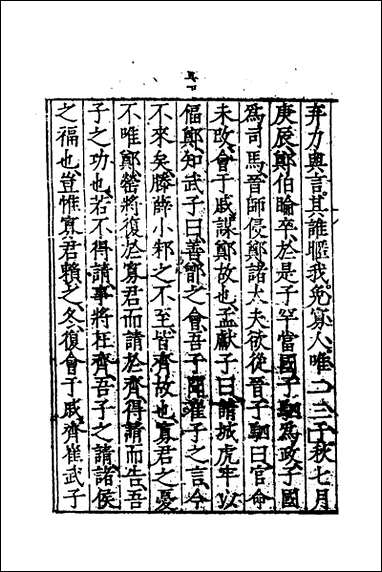 弃力與言其誰暱我免寡人唯二三子秋七月
庚辰鄭伯睔卒於是子罕當國子駟為政子國
為司馬晉師侵鄭諸大夫欲從晉子駟曰官命
未改會于戚謀鄭故也孟獻子曰請城虎牢以
偪鄭知武子曰善鄫之會吾子聞崔子之言今
不來矣滕薛小邾之不至皆齊故也寡君之憂
不唯鄭罃將復於寡君而請於齊得請而告吾
子之功也若不得請事將在齊吾子之請諸侯
之福也豈惟寡君賴之冬復會于戚齊崔武子